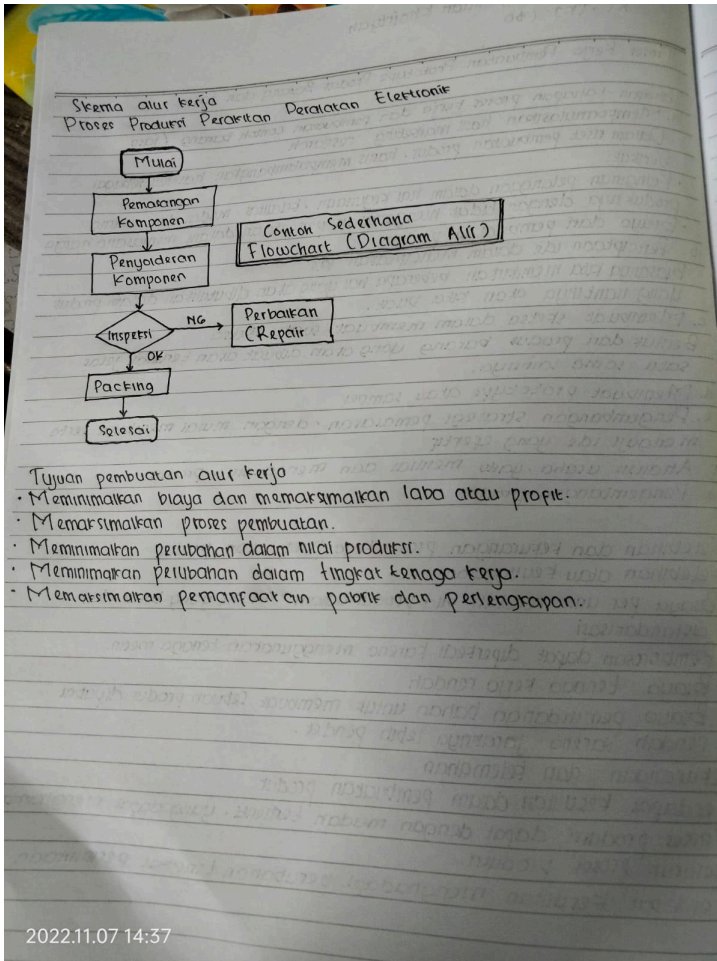 Skema alur kerja
Proses Produksi Perakitan Peralatan Elektronik
Mulai
Pemasangan
Komponen
Contoh Sederhana
Flowchart (Diagram Alir)
Penyolderan
Komponen
Inspeksi
NG
Perbaikan
(Repair
OK
Packing
Selesai
Tujuan pembuatan alur kerja
· Meminimalkan biaya dan memaksimalkan laba atau profit.
· Memaksimalkan proses pembuatan.
· Meminimalkan perubahan dalam nilai produksi.
· Meminimalkan perubahan dalam tingkat tenaga kerja.
· Memaksimalkan pemanfaatan pabrik dan perlengkapan.
2022.11.07 14:37